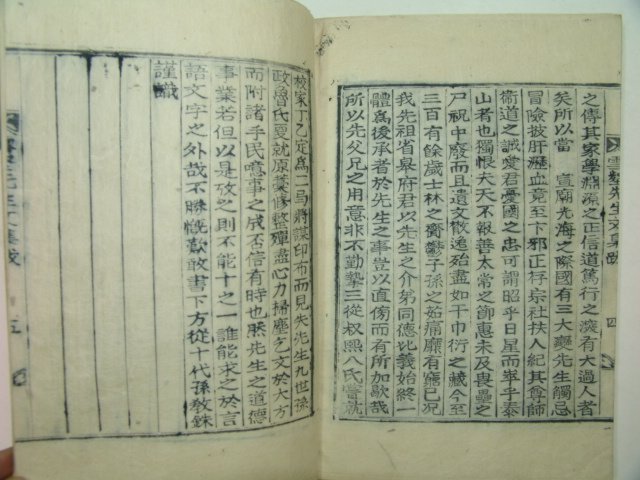 之傳其家學淵源之正信道篤行之深有大過人者
矣所以當 宣廟光海之際國有三大變先生觸忌
冒險披肝瀝血竟至卞邪正存宗社扶人紀其尊師
衛道之誠愛君憂國之忠可謂昭乎日星而崒乎泰
山者也獨恨夫天不報善太常之節惠未及畏壘之
尸祝中廢而且遺文散逸殆盡如干巾衍之藏今至
三百有餘歲士林之齎鬱子孫之茹痛靡有窮已況
我先祖省皐府君以先生之介弟同德比義始終一
體爲後承者於先生之事豈以直傍而有所加歇哉
所以先父兄之用意非不勤摯三從叔熙八氏嘗就
校家丁乙定爲二局將謀印布而見失先生九世孫
政魯氏夏就原藁修整殫盡心力掃塵乞文於大方
而附諸手民噫事之成否信有時也然先生之道德
事業若但以是攷之則不能十之一誰能求之於言
語文字之外哉不勝慨歎敢書下方從十代孫敎銖
謹識
四
五